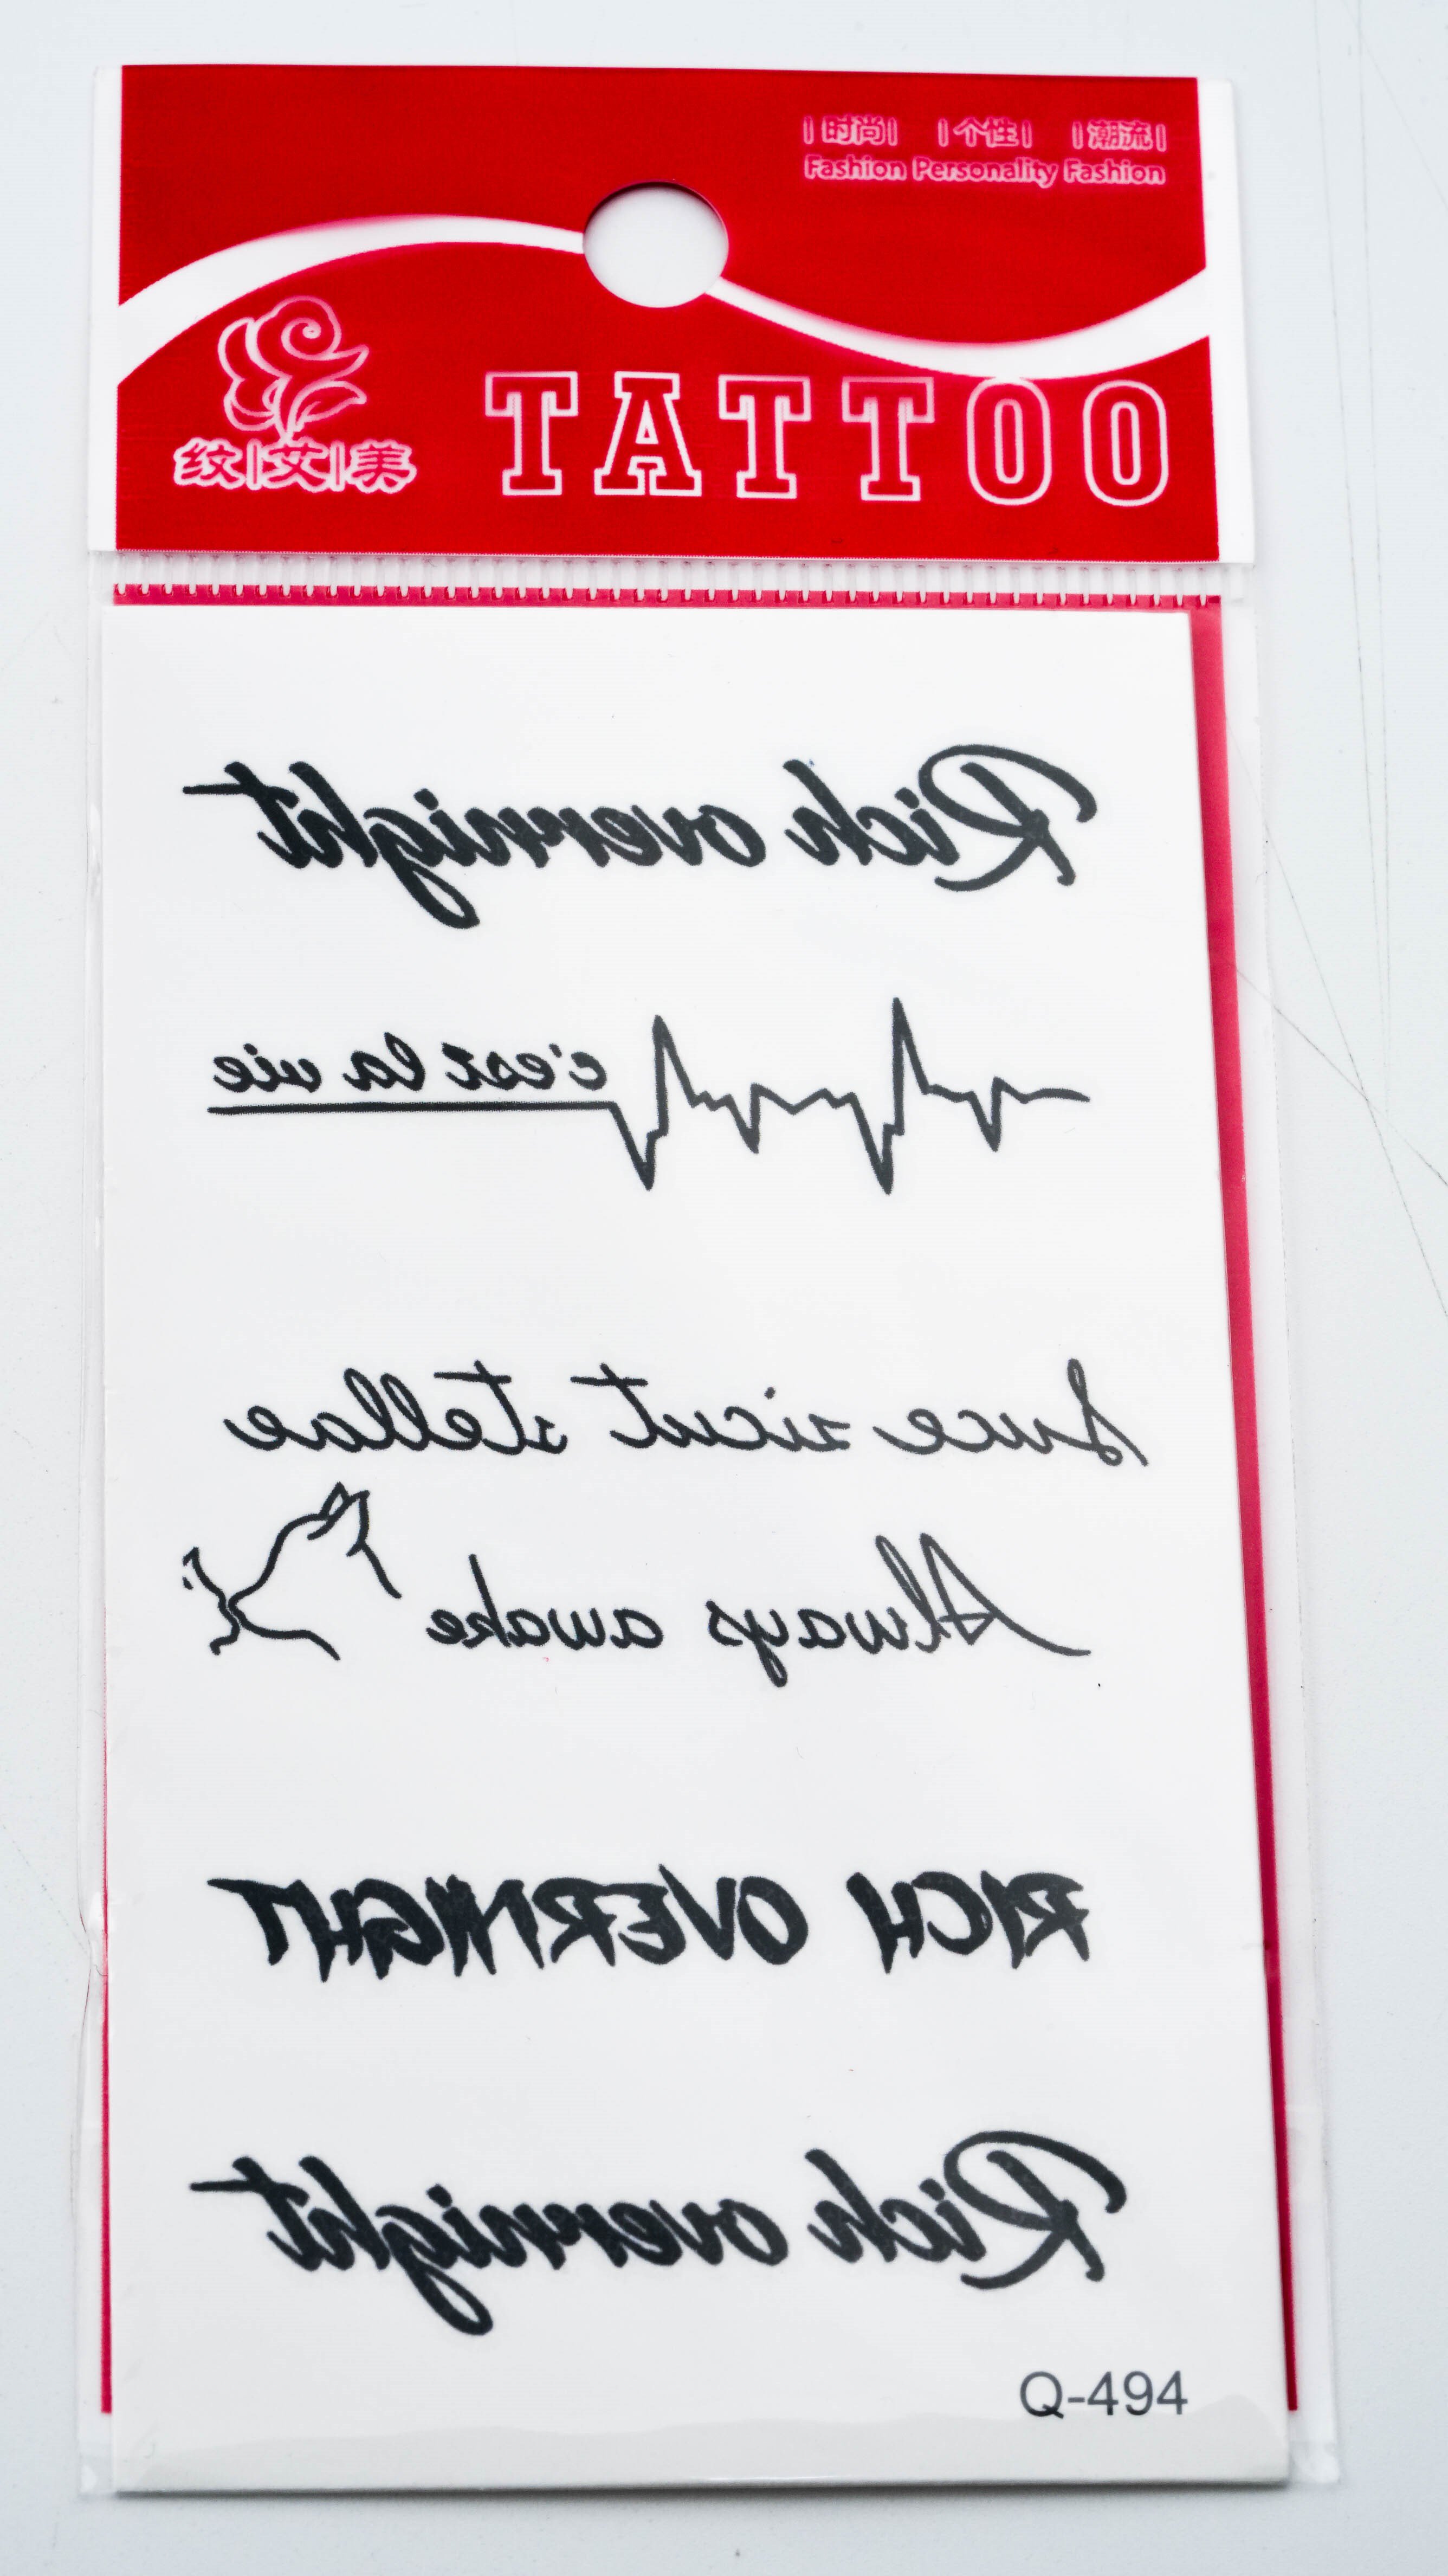 |时尚| |个性| |潮流|
Fashion Personality Fashion
纹|艾|美
TATTOO
Rich overnight
c'est la vie
Luce sicut stellae
Always awake
RICH OVERNIGHT
Rich overnight
Q-494